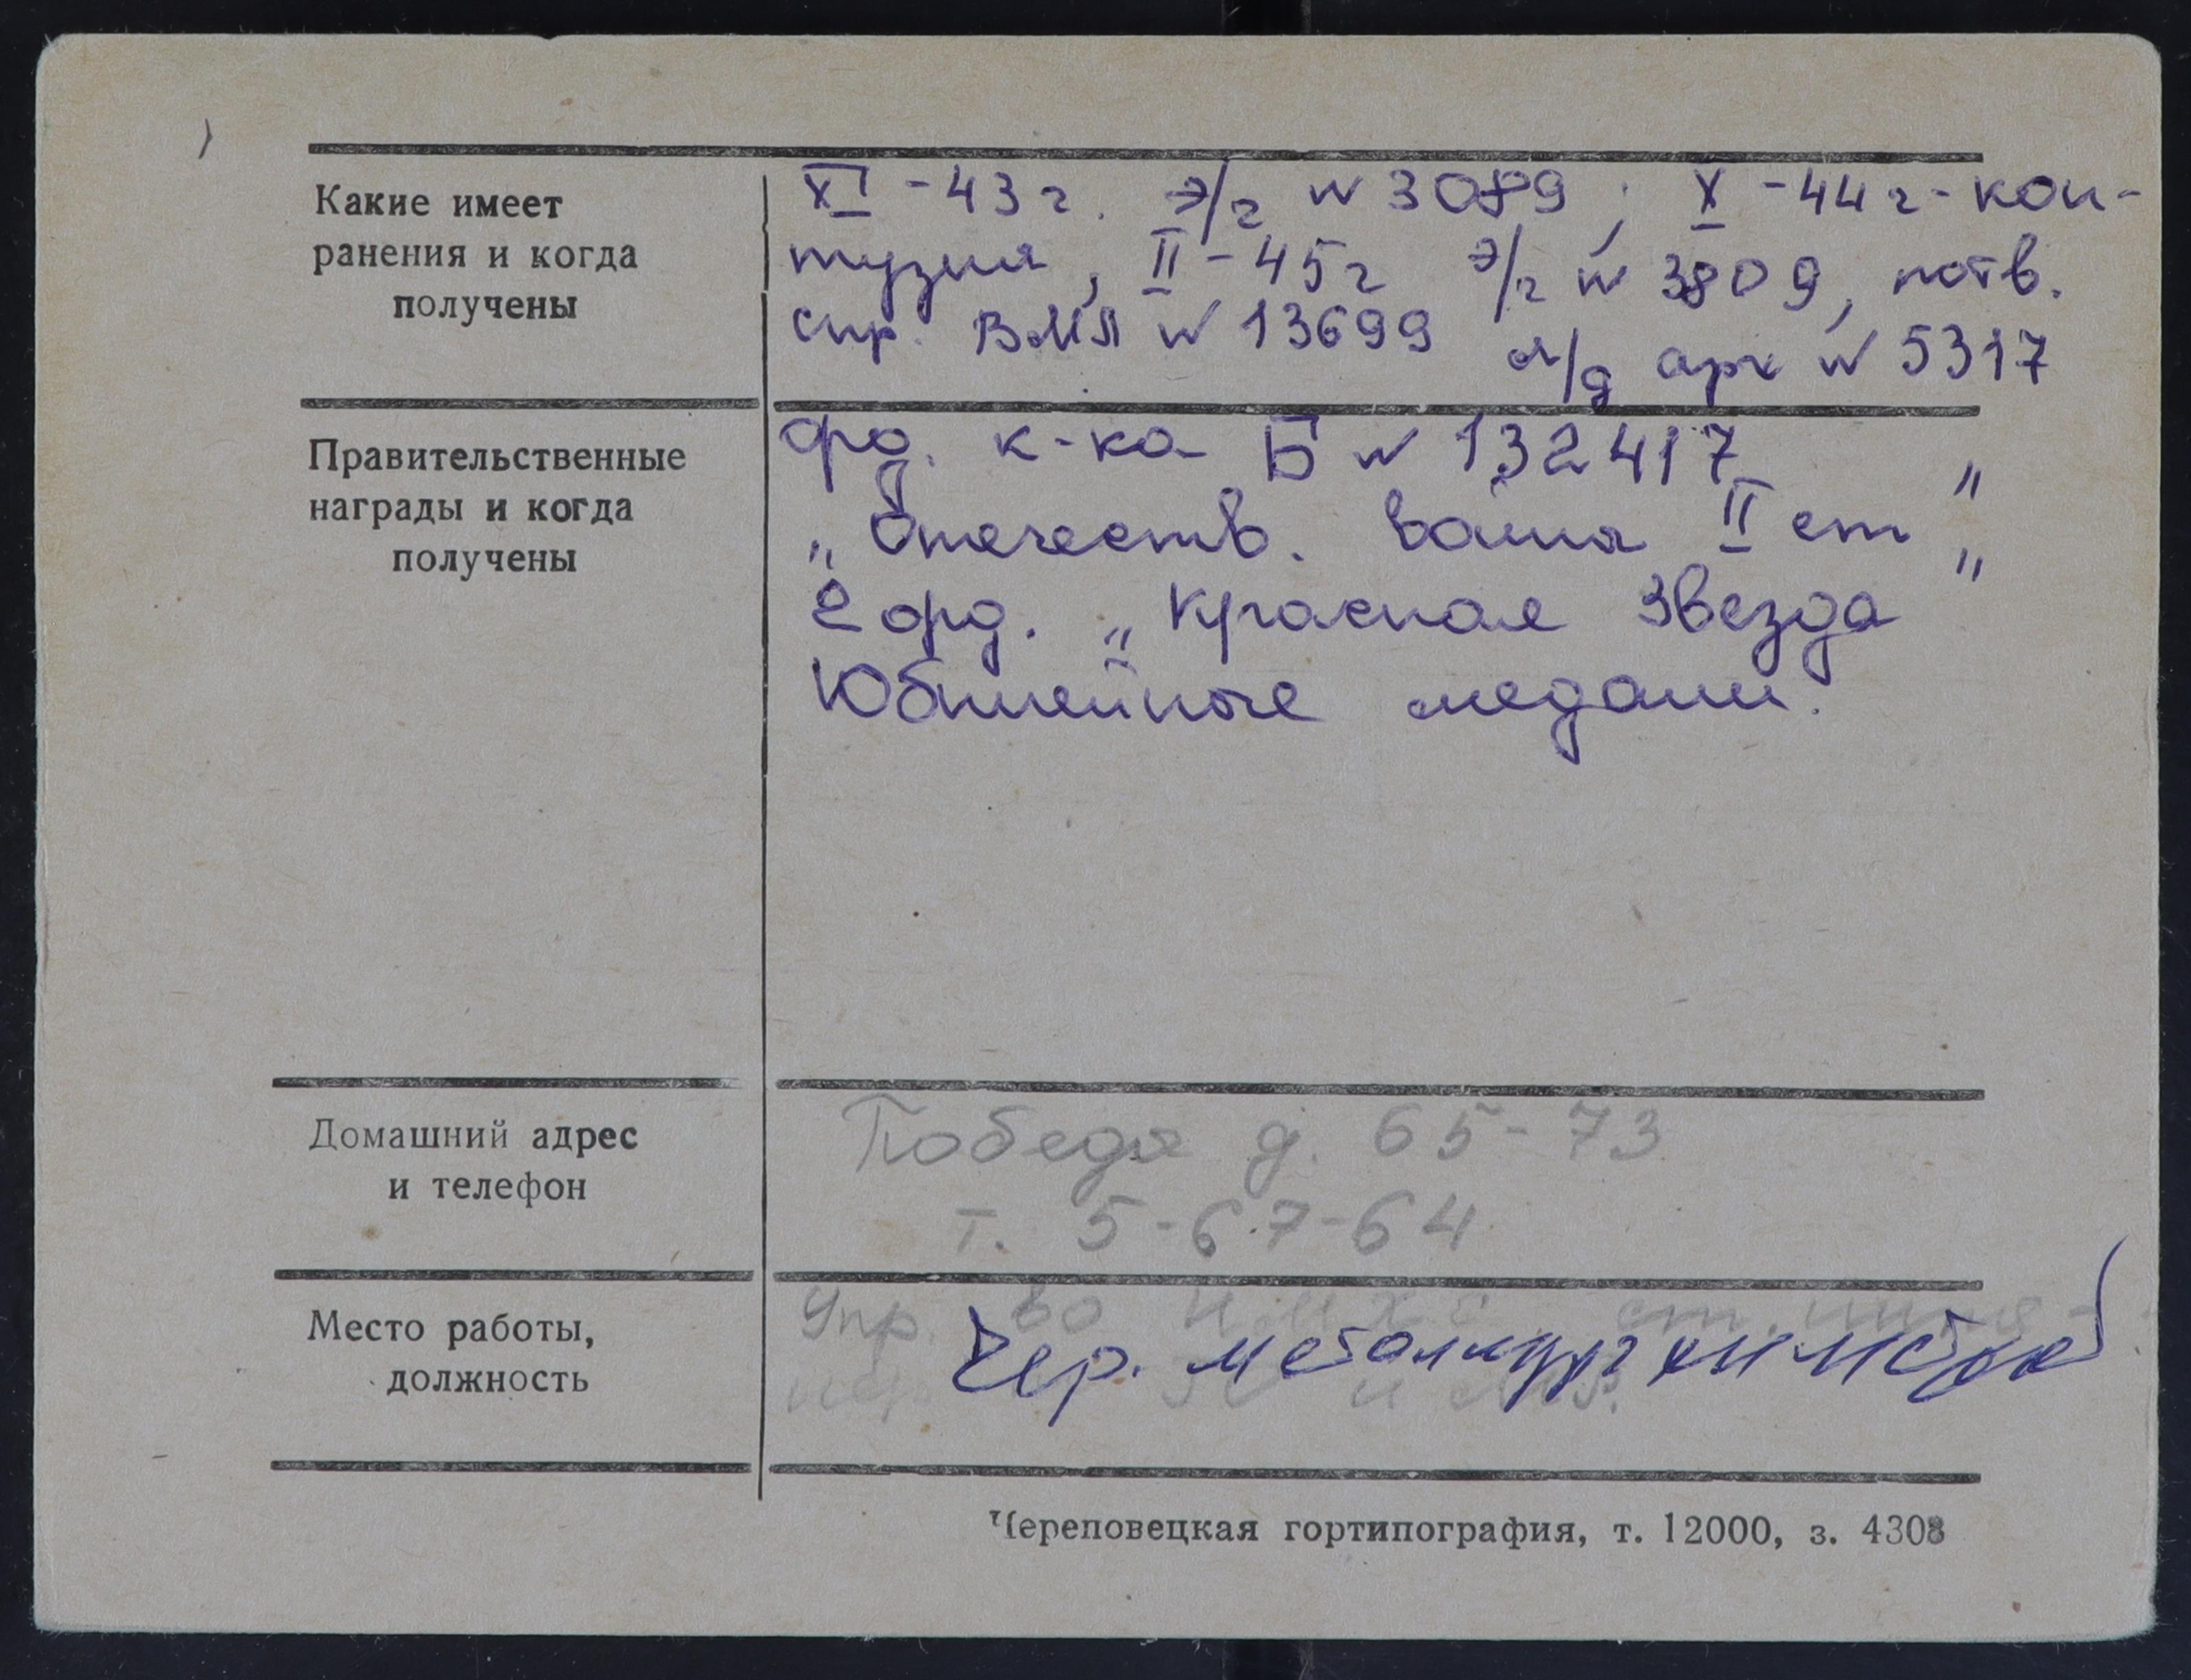 Какие имеет
ранения и когда
получены
XI - 43 г. э/г № 3089 ; X - 44 г - кон-
тузия, II - 45 г э/г № 3809, потв.
спр. ВММ № 13699 л/д арх № 5317
Правительственные
награды и когда
получены
орд. к-ка Б № 132417
„Отечеств. война II ст"
2 орд. „Красная Звезда"
Юбилейные медали.
Домашний адрес
и телефон
Победы д. 65-73
т. 5-67-64
Место работы,
должность
Упр. во ст.
Чер. металлургхимстрой
Череповецкая гортипография, т. 12000, з. 4308